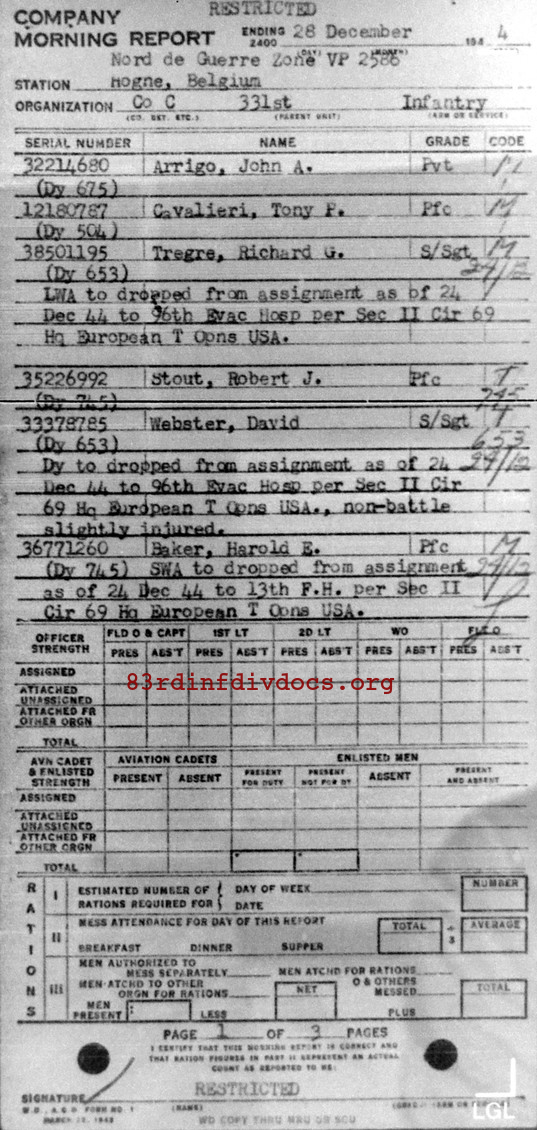 RESTRICTED
COMPANY
MORNING REPORT ENDING 2400 28 December 194 4
(DAY) (MONTH)
Nord de Guerre Zone VP 2586
STATION Hogne, Belgium
ORGANIZATION Co C 331st Infantry
(CO. DET. ETC.) (PARENT UNIT) (ARM OR SERVICE)
SERIAL NUMBER NAME GRADE CODE
32214680 Arrigo, John A. Pvt M
(Dy 675)
12180787 Cavalieri, Tony P. Pfc M
(Dy 504)
38501195 Tregre, Richard G. S/Sgt M
(Dy 653) 29/12
LWA to dropped from assignment as of 24
Dec 44 to 96th Evac Hosp per Sec II Cir 69
Hq European T Opns USA.
35226992 Stout, Robert J. Pfc T
(Dy 745) 745
33378785 Webster, David S/Sgt T
(Dy 653) 653
Dy to dropped from assignment as of 24 29/12
Dec 44 to 96th Evac Hosp per Sec II Cir
69 Hq European T Opns USA., non-battle
slightly injured.
36771260 Baker, Harold E. Pfc M
(Dy 745) SWA to dropped from assignment 29/12
as of 24 Dec 44 to 13th F.H. per Sec II
Cir 69 Hq European T Opns USA.
OFFICER STRENGTH FLD O & CAPT 1ST LT 2D LT WO FLT O
PRES ABS'T PRES ABS'T PRES ABS'T PRES ABS'T PRES ABS'T
ASSIGNED
83rdinfdivdocs.org
ATTACHED UNASSIGNED
ATTACHED FR OTHER ORGN
TOTAL
AVN CADET & ENLISTED STRENGTH AVIATION CADETS ENLISTED MEN
PRESENT ABSENT PRESENT FOR DUTY PRESENT NOT FOR DY ABSENT PRESENT AND ABSENT
ASSIGNED
ATTACHED UNASSIGNED
ATTACHED FR OTHER ORGN
TOTAL
RATIONS
I ESTIMATED NUMBER OF RATIONS REQUIRED FOR { DAY OF WEEK DATE NUMBER
II MESS ATTENDANCE FOR DAY OF THIS REPORT TOTAL ÷ 3 AVERAGE
BREAKFAST DINNER SUPPER
III MEN AUTHORIZED TO MESS SEPARATELY MEN ATCHD FOR RATIONS
MEN ATCHD TO OTHER ORGN FOR RATIONS NET O & OTHERS MESSED TOTAL
MEN PRESENT LESS PLUS
PAGE 1 OF 3 PAGES
I CERTIFY THAT THIS MORNING REPORT IS CORRECT AND
THAT RATION FIGURES IN PART II REPRESENT AN ACTUAL
COUNT AS REPORTED TO ME:
RESTRICTED
SIGNATURE
W.D., A.G.O. FORM NO. 1 (NAME)
MARCH 12, 1943
WD COPY THRU MRU OR SCU
LGL